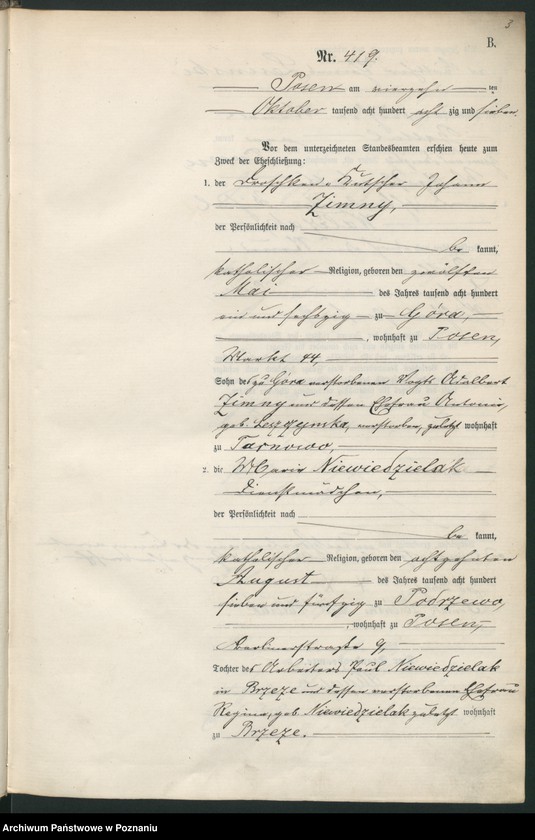 3
B.
Nr. 419.
Posen am vierzehn ten
Oktober tausend acht hundert acht zig und sieben
Vor dem unterzeichneten Standesbeamten erschien heute zum
Zweck der Eheschließung:
1. der Droschken-Kutscher Johann
Zimny,
der Persönlichkeit nach
be kannt,
katholischer Religion, geboren den zwölften
Mai des Jahres tausend acht hundert
ein und sechszig zu Góra,
, wohnhaft zu Posen,
Markt 44,
Sohn des zu Góra verstorbenen Vogts Adalbert
Zimny und dessen Ehefrau Antonie,
geb. verstorben, zuletzt wohnhaft
zu Tarnowo,
2. die Marie Niewiedzielak
Dienstmädchen,
der Persönlichkeit nach
be kannt,
katholischer Religion, geboren den achtzehnten
August des Jahres tausend acht hundert
sieben und fünfzig zu Podrzewo,
, wohnhaft zu Posen,
Berlinerstraße 9,
Tochter des Arbeiters Paul Niewiedzielak
in Brzeze und dessen verstorbenen Ehefrau
Regina, geb. Niewiedzielak zuletzt wohnhaft
zu Brzeze.
Archiwum Państwowe w Poznaniu